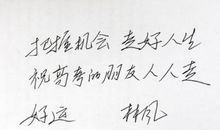 把握机会 走好人生
祝高考的朋友人人走
好运 林风